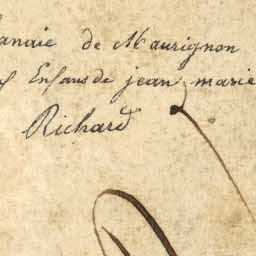 de Maurignon
Enfans de jean marie
Richard